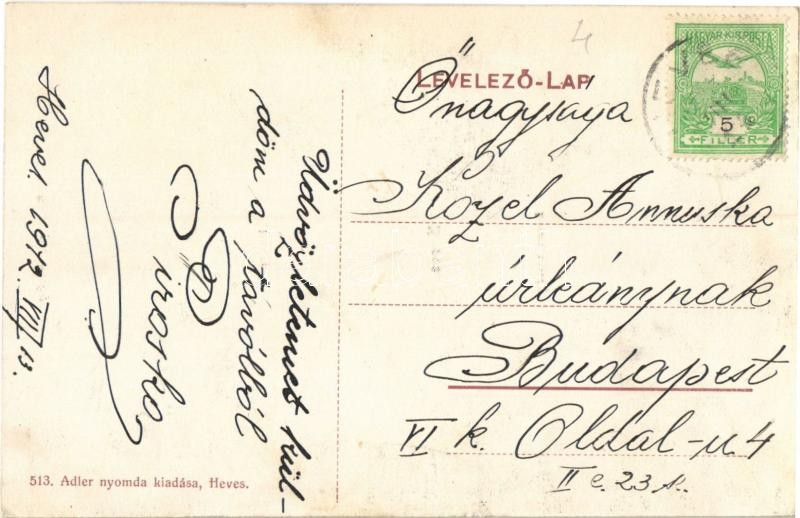 LEVELEZŐ-LAP
MAGYAR KIR. POSTA
5
FILLÉR
4
Őnagysága
Kozel Annuska
úrleánynak
Budapest
VI k. Oldal-u 4
II e. 23 s.
Heves 1912. VIII/13.
Üdvözletemet kül-
döm a távólból
Piroska
513. Adler nyomda kiadása, Heves.